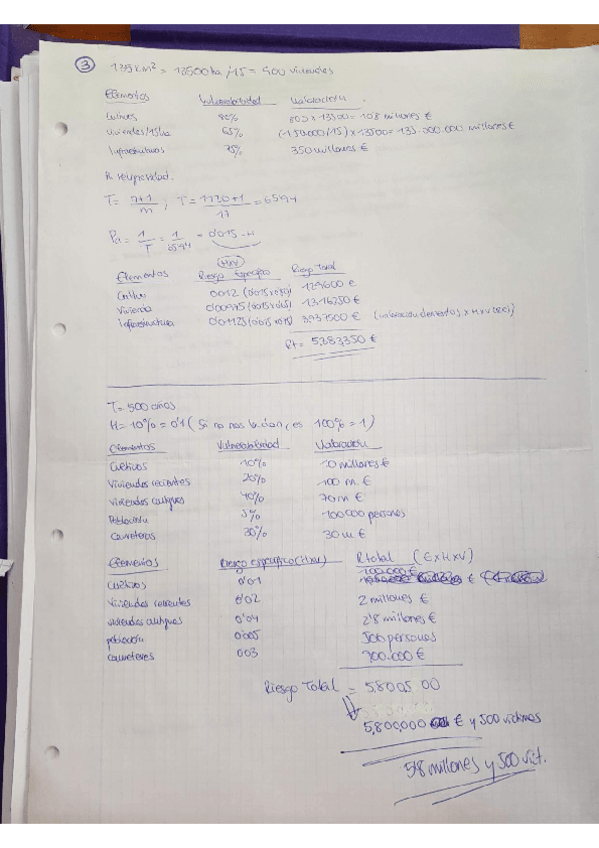 3 135 km² = 13500 ha /15 = 900 viviendas
Elementos Vulnerabilidad Valoración
Cultivos 80% 800 x 13500 = 10'8 millones €
Viviendas/15ha 65% (150000/15) x 13500 = 135.000.000 millones €
Infraestructuras 75% 350 millones €
T = n+1 / m ; T = 1120+1 / 17 = 65'94
Pa = 1/T = 1/65'94 = 0'015 = H
(HxV)
Elementos Riesgo Específico Riesgo Total
Cultivo 0'012 (0'015x0'80) 129600 €
Vivienda 0'00975 (0'015x0'65) 1.316.250 €
infraestructura 0'01125 (0'015x0'75) 3.937.500 € (valoración elementos x HxV (esp))
Rt = 5.383.350 €
T = 500 años
H = 10% = 0'1 (Si no nos la dan, es 100% = 1)
Elementos Vulnerabilidad Valoración
Cultivos 10% 10 millones €
Viviendas recientes 20% 100 m. €
viviendas antiguas 40% 70 m €
Población 5% 100000 personas
Carreteras 30% 30 m €
Elementos Riesgo específico (HxV) R total (ExHxV)
Cultivos 0'01 100.000 €
Viviendas recientes 0'02 2 millones €
viviendas antiguas 0'04 2'8 millones €
población 0'005 500 personas
carreteras 0'03 900.000 €
Riesgo Total = 58005 00
5,800,000 € y 500 víctimas
5'8 millones y 500 vict.